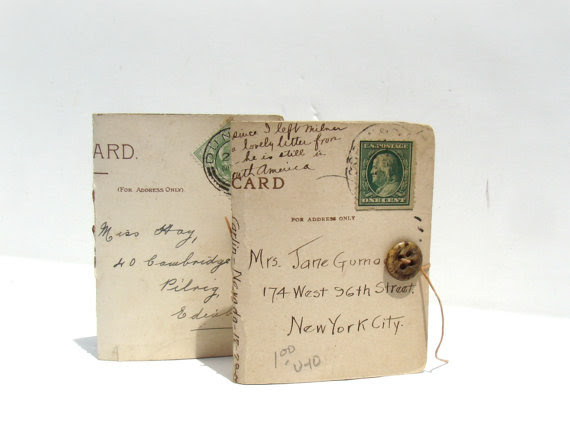 ARD.
(FOR ADDRESS ONLY)
Miss Hay,
40 Cambridge
Pilrig
DUN
since I left Milner
a lovely letter from
he is still in
th America
CARD
U.S. POSTAGE
ONE CENT
FOR ADDRESS ONLY
Mrs. Jane
174 West 96th Street.
New York City.
1.00